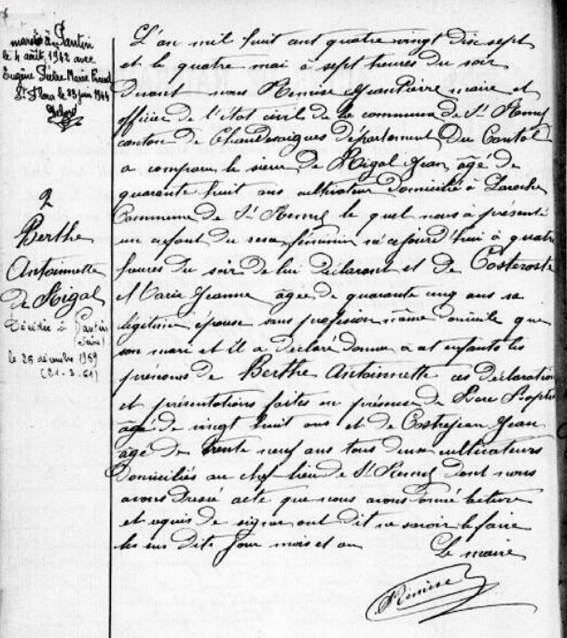 mariée à Pantin
le 4 août 1942 avec
Eugène
St Flour le 23 juin 1944
2
Berthe
Antoinnette
de Rigal
Décédée à Pantin
(Seine)
le 25 décembre 1959
L'an mil huit cent quatre vingt dix sept
et le quatre mai à sept heures du soir
devant nous Remise Jean Pierre maire et
officier de l'état civil de la commune de St Remy
canton de Chaudesaigues département du Cantal
a comparu le sieur de Rigal Jean, âgé de
quarante huit ans cultivateur domicilié à Laroche
Commune de St Remy le quel nous a présenté
un enfant du sexe féminin né ce jourd'hui à quatre
heures du soir de lui déclarant et de
Marie Jeanne âgée de quarante cinq ans sa
légitime épouse sans profession même domicile que
son mari et il a déclaré donner à cet enfants les
prénoms de Berthe Antoinnette ces déclaration
et présentations faites en présence de
âgé de vingt huit ans et de Jean
âgé de trente neuf ans tous deux cultivateurs
domiciliés au chef-lieu de St Remy dont nous
avons dressé acte que nous avons donné lecture
et requis de signer ont dit ne savoir le faire
les sus dits jour mois et an Le maire
Remise